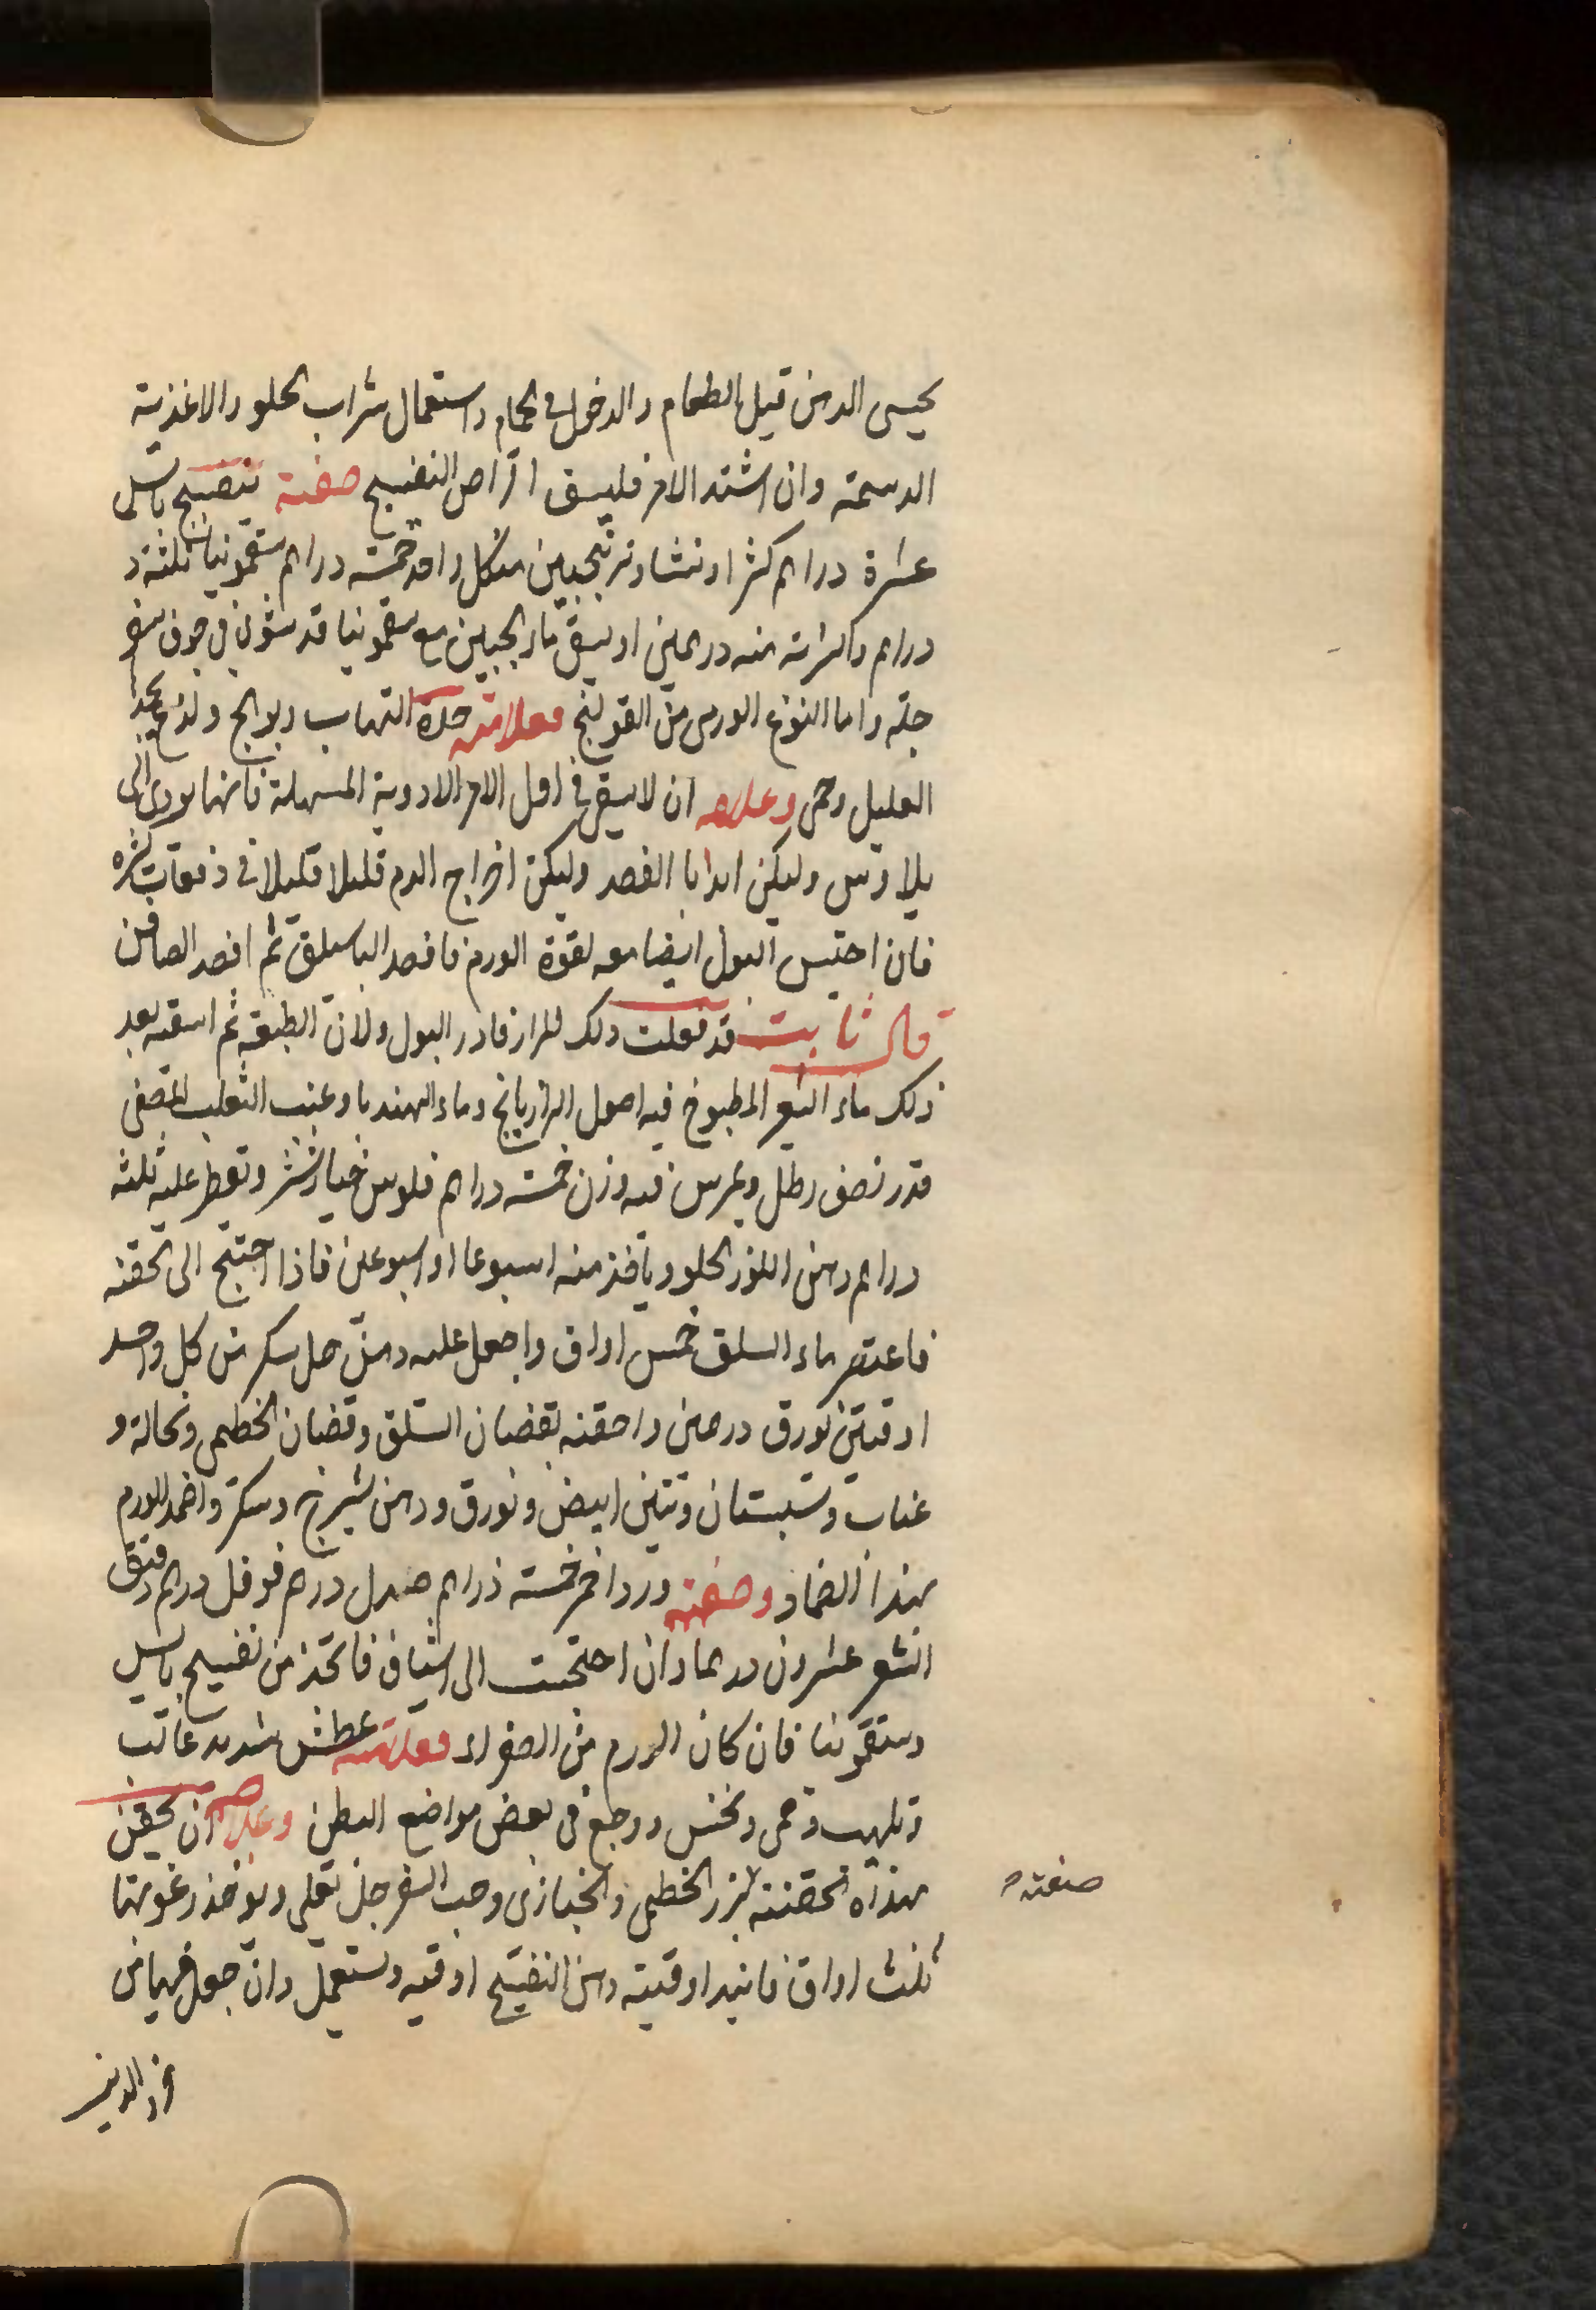 يحسى الدهن قبل الطعام والدخول فى الحمام واستعمال شراب الحلو والاغذية
الدسمة وان اشتد الامر فليسق اقراص البنفسج صفته بنفسج يابس
عشرة دراهم كثيرا ونشا وترنجبين من كل واحد خمسة دراهم سقمونيا ثلثة
دراهم والشربة منه درهمين او يسقى ماء الجبين مع سقمونيا قد شوى فى جوف سفر
جلة واما النوع الورمى من القولنج فعلامته حدة التهاب ولذع يجد
العليل وحمى وعلاجه ان لا يسقى فى اول الامر الادوية المسهلة فانها يودى الى
يلاوس وليكن ابدا بالفصد وليكن اخراج الدم قليلا قليلا فى دفعات كثيره
فان احتبس البول ايضا معه لقوة الورم فافصد الباسليق ثم افصد الصافن
قال ثابت قد فعلت ذلك مرار فادر البول ولان الطبيعة ثم اسقه بعد
ذلك ماء الشعير المطبوخ فيه اصول الرازيانج وماء الهندبا وعنب الثعلب المصفى
قدر نصف رطل ويمرس فيه وزن خمسة دراهم فلوس خيارشنبر وتقطر عليه ثلثه
دراهم دهن اللوز الحلو وياخذ منه اسبوعا او اسبوعين فاذا احتيج الى الحقنه
فاعتصر ماء السلق خمس اواق واجعل عليه دهن حل سكر من كل واحد
اوقيتين بورق درهمين واحقنه بقضبان السلق وقضبان الخطمى ونخالة و
عناب وسبستان وتين ابيض وبورق ودهن شيرج وسكر واضمد الورم
بهذا الضماد وصفته ورد احمر خمسة دراهم صندل درهم فوفل درهم دقيق
الشعير عشرون درهما وان احتجت الى اشياف فاتخذ من بنفسج يابس
وسقمونيا فان كان الورم من الصفراء فعلامته عطش شديد غالب
وتلهب وحمى ونخس ووجع فى بعض مواضع البطن وعلاجه ان يحقن
بهذه الحقنة بزر الخطمى والخبازى وحب السفرجل تغلى ويوخذ رغوتها
ثلث اواق فانيد اوقية دهن البنفسج اوقيه وتستعمل وان جعل فيها من
صفته